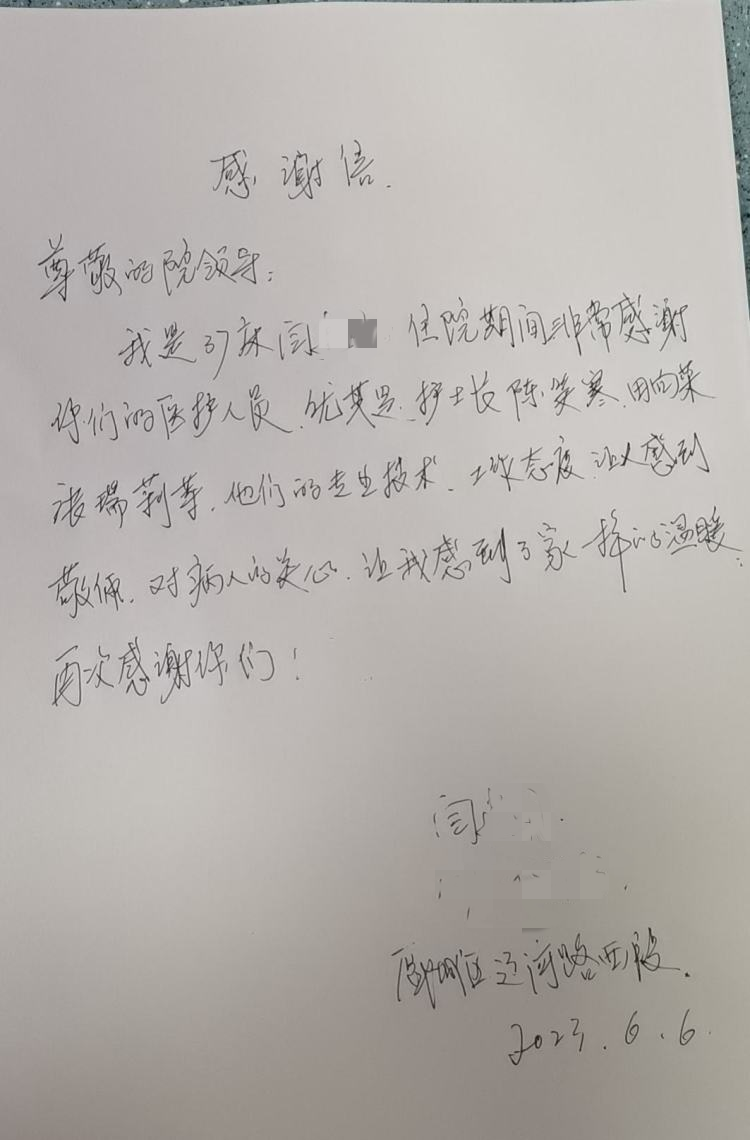 感谢信.
尊敬的院领导:
我是37床闫 住院期间非常感谢
你们的医护人员.尤其是.护士长陈笑寒.田向荣
张瑞莉等.他们的专业技术.工作态度.让人感到
敬佩.对病人的关心.让我感到了家一样的温暖.
再次感谢你们!
闫
郾城区辽河路西段.
2023.6.6.